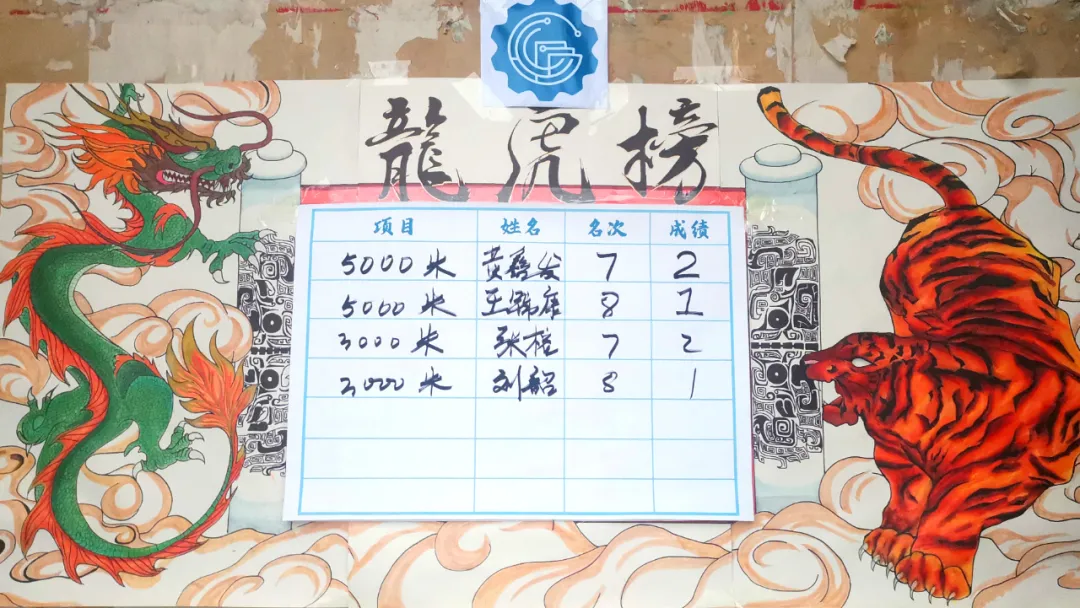 龍虎榜
项目 姓名 名次 成绩
5000米 黄 发 7 2
5000米 王锦康 8 1
3000米 张 7 2
3000米 刘韶 8 1